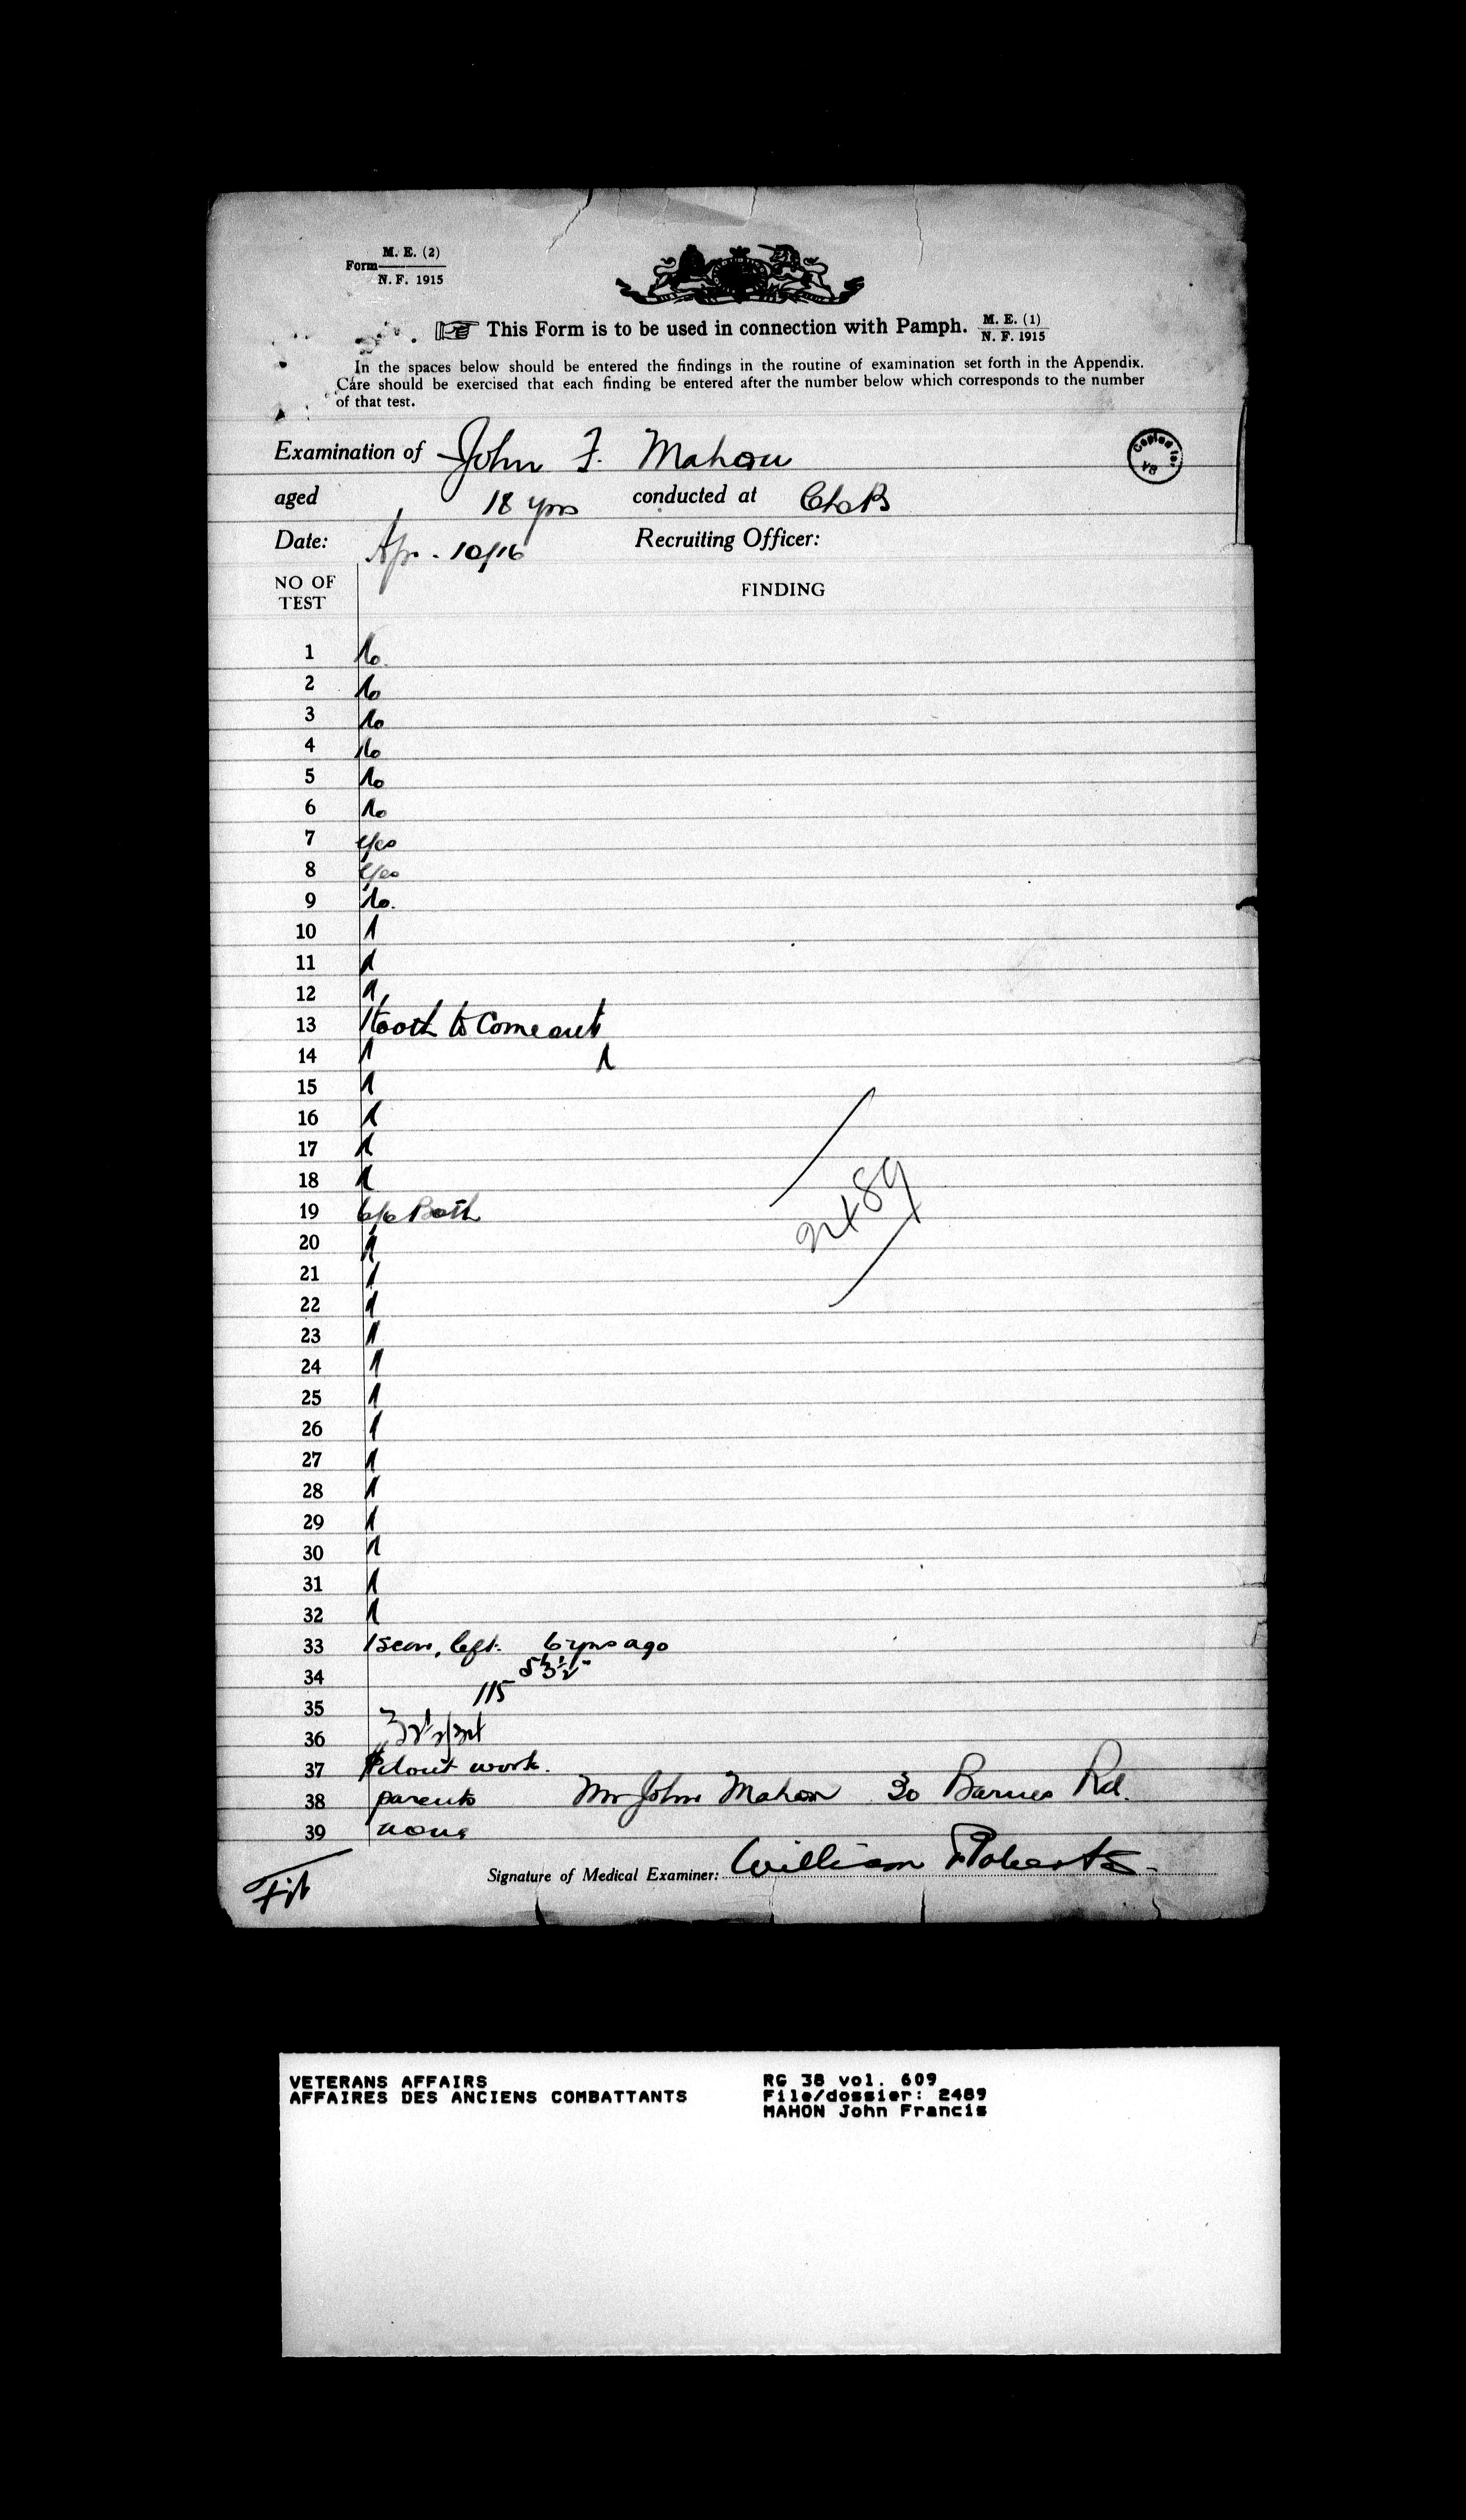 Form M. E. (2)
N. F. 1915
This Form is to be used in connection with Pamph. M. E. (1)
N. F. 1915
In the spaces below should be entered the findings in the routine of examination set forth in the Appendix.
Care should be exercised that each finding be entered after the number below which corresponds to the number
of that test.
Examination of John F. Mahon
Copied for
aged 18 yrs conducted at
Date: Apr. 10/16 Recruiting Officer:
NO OF
TEST
FINDING
1 No.
2 No
3 No
4 No
5 No
6 No
7 Yes
8 Yes
9 No.
10
11
12
13 1 tooth to Come out
14
15
16
17
18
19 6/6 Both
20
21
22
2489
23
24
25
26
27
28
29
30
31
32
33 1 scar, left. 6 yrs ago
34 5 3½"
35 115
36
37 dont work.
38 parents Mr John Mahon 30 Barnes Rd.
39 none
Signature of Medical Examiner: William Roberts
Fit
VETERANS AFFAIRS
AFFAIRES DES ANCIENS COMBATTANTS
RG 38 vol. 609
File/dossier: 2489
MAHON John Francis